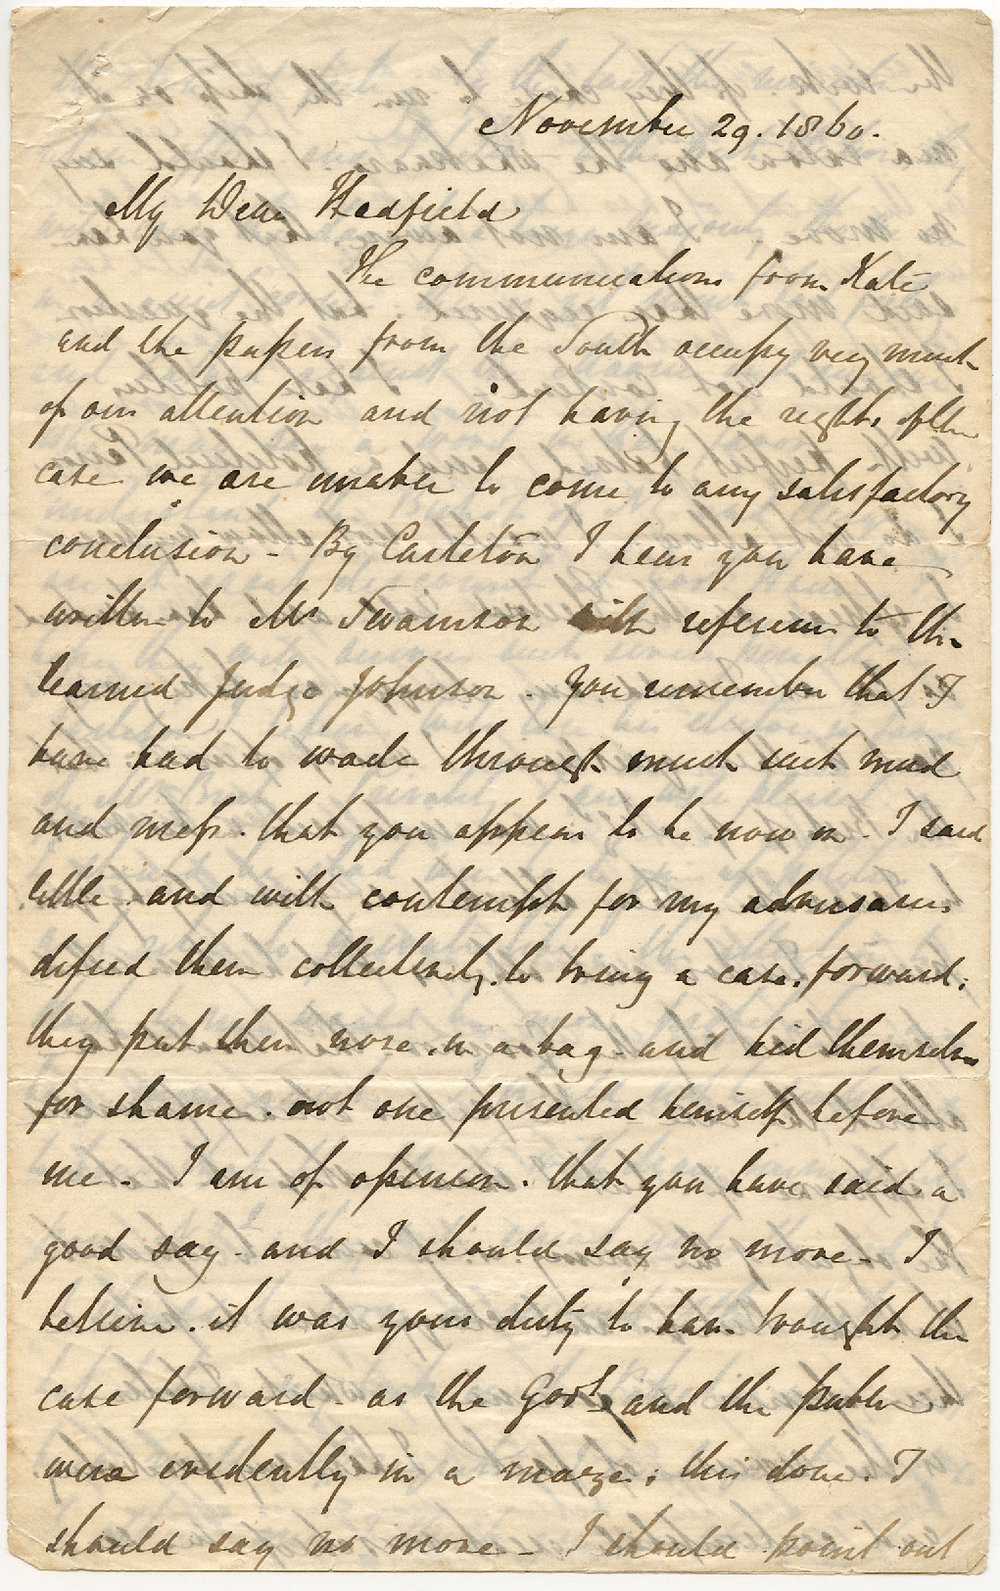 November 29. 1860.
My Dear Hadfield
The communications from Kate
and the papers from the South occupy very much
of our attention and not having the rights of the
case we are unable to come to any satisfactory
conclusion - By Carleton I hear you have
written to Mr Swainson with reference to the
learned Judge Johnson. You remember that I
have had to wade through much such mud
and mess. that you appear to be now in. I said
little. and with contempt for my adversaries
defied them collectively. to bring a case. forward;
they put their nose. in a bag - and hid themselves
for shame. not one presented himself before
me - I am of opinion. that you have said a
good say - and I should say no more - I
believe. it was your duty to have brought the
case forward - as the Govt and the public
were evidently in a maze; this done. I
should say no more - I should point out